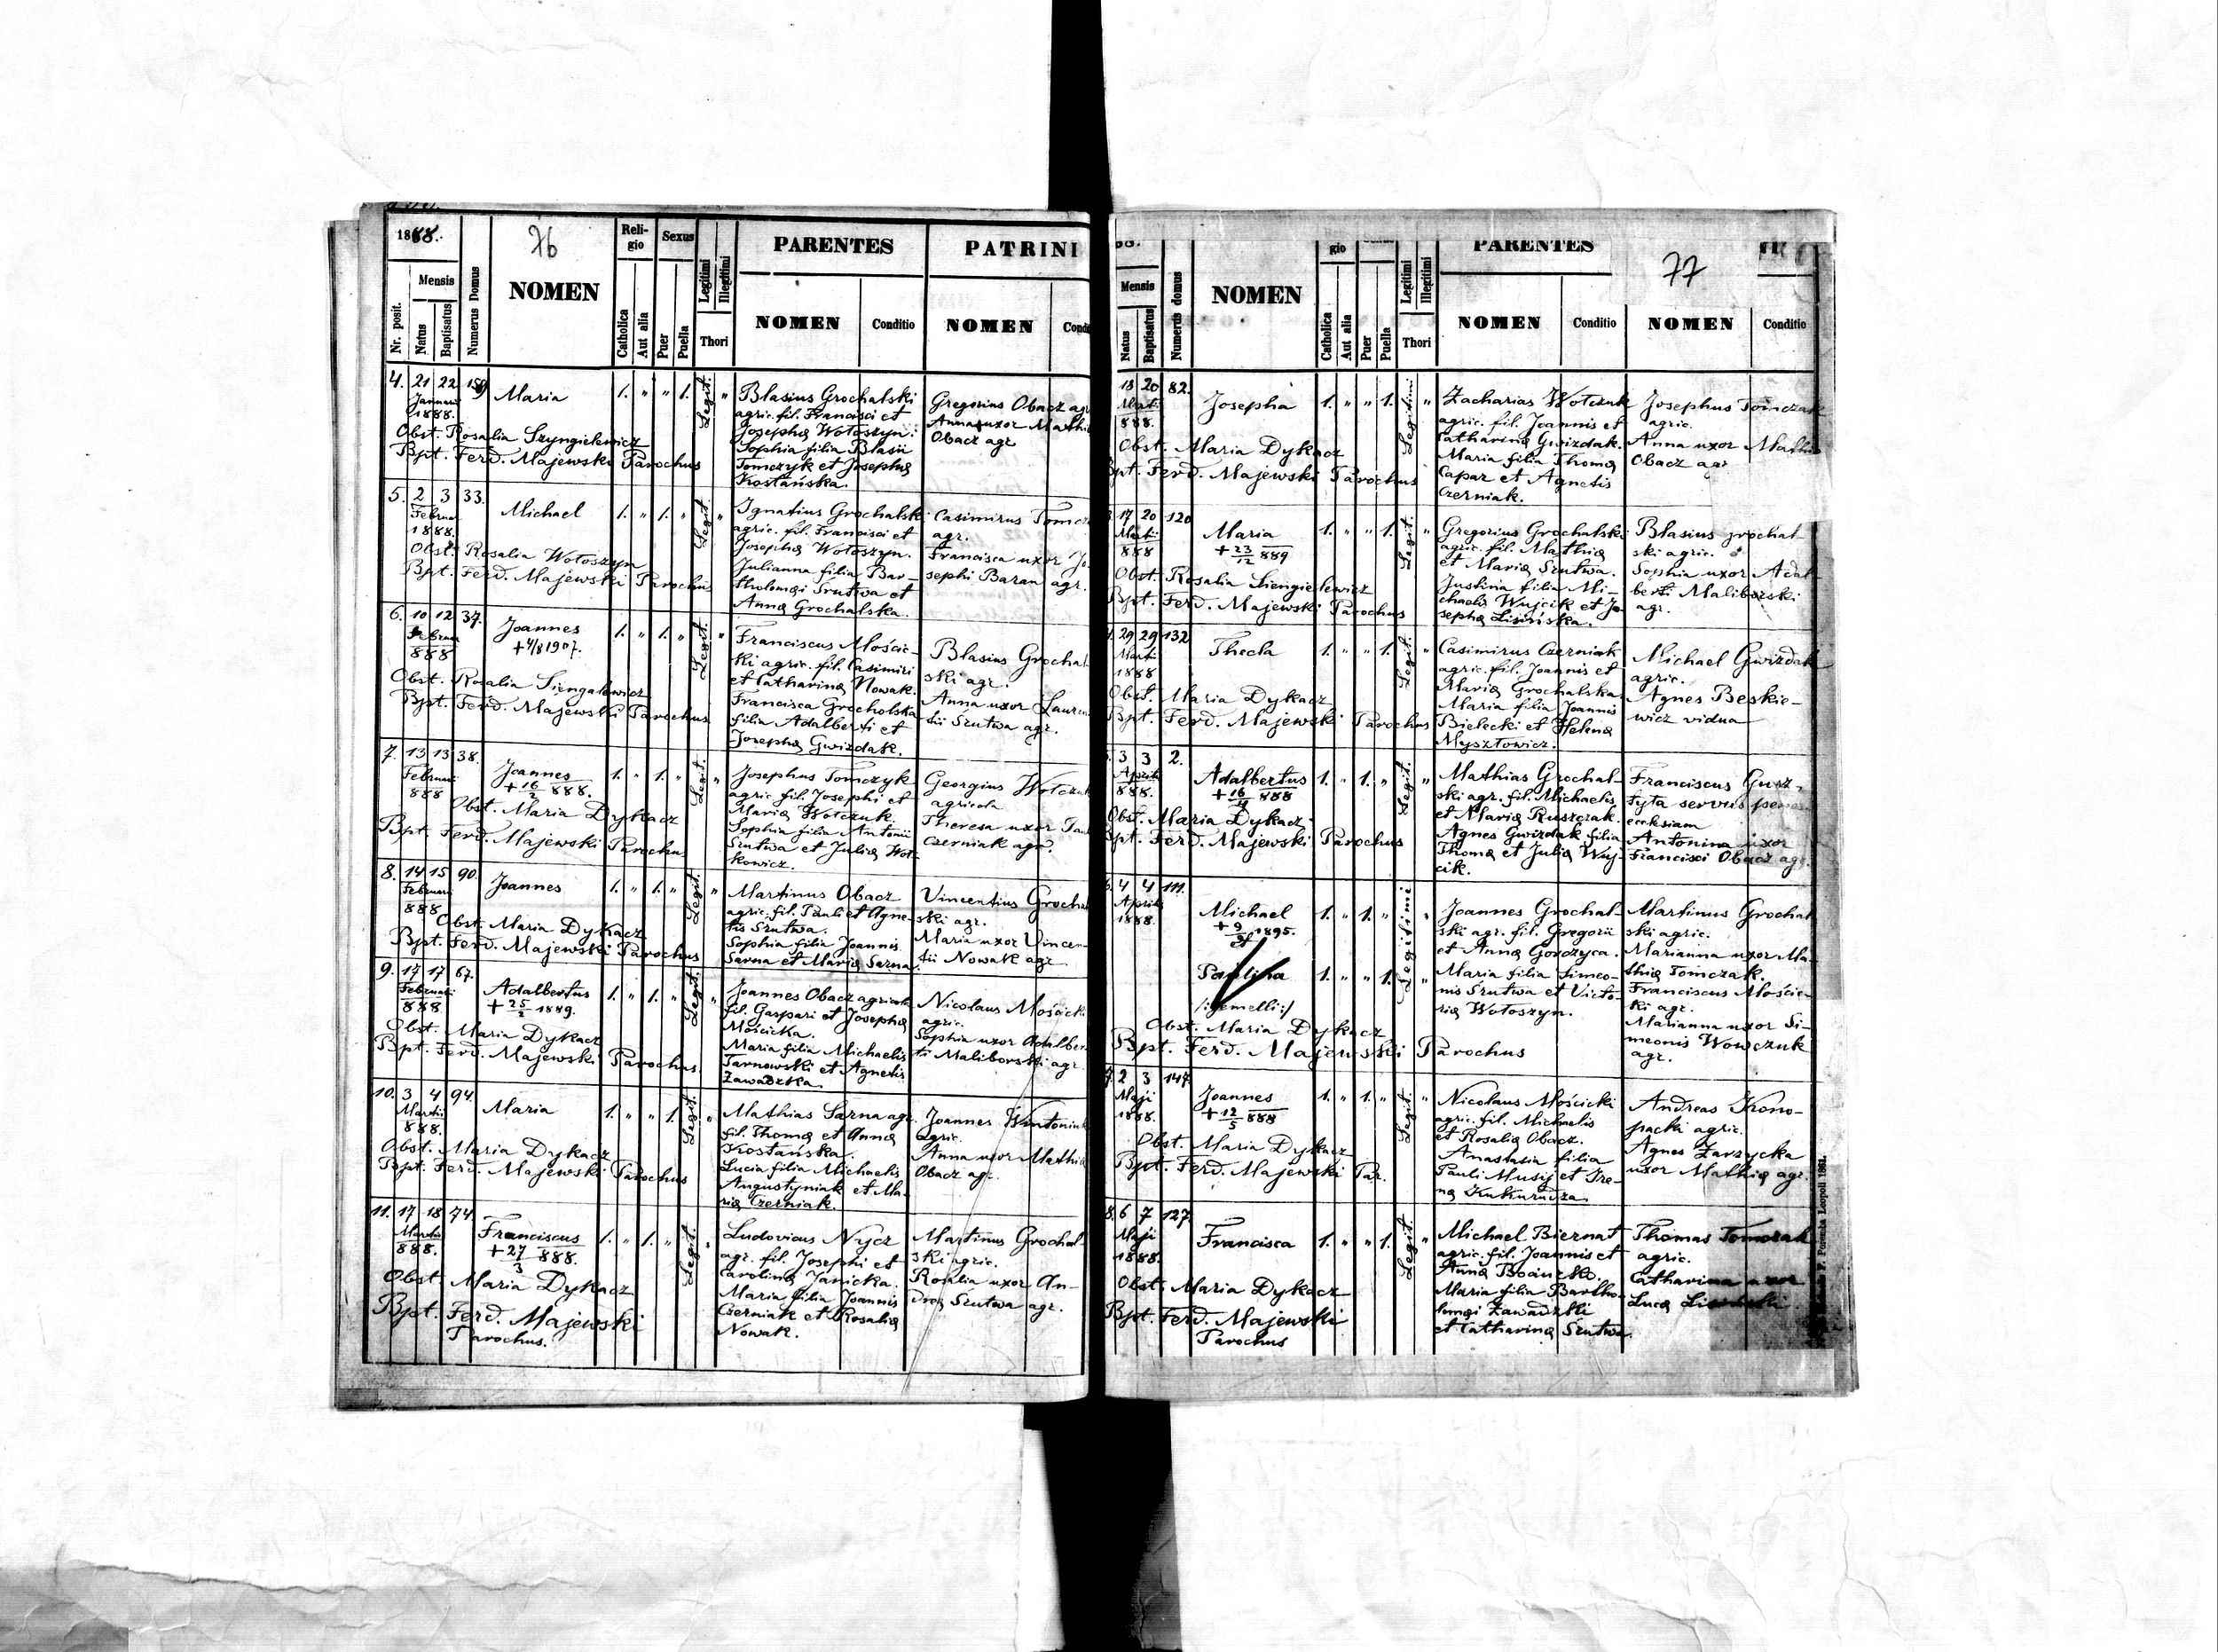 1888.
76
Religio
Sexus
Legitimi
Illegitimi
PARENTES
PATRINI
Mensis
Nr. posit.
Natus
Baptisatus
Numerus Domus
NOMEN
Catholica
Aut alia
Puer
Puella
Thori
NOMEN
Conditio
NOMEN
4. 21 22 159 Maria 1. " " 1. Legit. "
Januari
1888.
Obst. Rosalia Szyngielewicz
Bpt. Ferd. Majewski Parochus
Blasius Grochalski
agric. fil. Francisci et
Josepha Wołoszyn.
Sophia filia Blasii
Tomczyk et Josepha
Kostańska.
Gregorius Obacz agr
Anna uxor Mathi
Obacz agr
5. 2 3 33. Michael 1. " 1. " Legit. "
Februar
1888.
Obst. Rosalia Wołoszyn
Bpt. Ferd. Majewski Parochus
Ignatius Grochalski
agric. fil. Francisci et
Josepha Wołoszyn.
Julianna filia Bar-
tholomæi Szutwa et
Anna Grochalska
Casimirus Tomcz
agr.
Francisca uxor Jo-
sephi Baran agr.
6. 10 12 37. Joannes 1. " 1. " Legit. "
Februar
888
+4/8 1907.
Obst. Rosalia Siengalewicz
Bpt. Ferd. Majewski Parochus
Franciscus Mościc-
ki agric. fil. Casimiri
et Catharina Nowak.
Francisca Grocholska
filia Adalberti et
Josepha Gwizdak.
Blasius Grochal-
ski agr.
Anna uxor Lauren-
tii Szutwa agr.
7. 13 13 38. Joannes 1. " 1. " Legit. "
Februari
888
+ 16/2 888.
Obst. Maria Dykacz
Bpt. Ferd. Majewski Parochus
Josephus Tomczyk
agric. fil. Josephi et
Maria Wołczuk.
Sophia filia Antonii
Szutwa et Julia Woł-
kowicz.
Georgius Wołczuk
agricola
Theresa uxor
Czerniak agr.
8. 14 15 90. Joannes 1. " 1. " Legit. "
Februari
888
Obst. Maria Dykacz
Bpt. Ferd. Majewski Parochus
Martinus Obacz
agric. fil. Pauli et Agne-
tis Szutwa.
Sophia filia Joannis
Sarna et Maria Sarna.
Vincentius Grochal
ski agr.
Maria uxor Vincen-
tii Nowak agr
9. 17 17 67. Adalbertus 1. " 1. " Legit. "
Februari
888.
+ 25/2 1889.
Obst. Maria Dykacz
Bpt. Ferd. Majewski Parochus.
Joannes Obacz agricola
fil. Gaspari et Josepha
Mościcka.
Maria filia Michaelis
Tarnowski et Agnetis
Zawadzka.
Nicolaus Mościck
agric.
Sophia uxor Adalber-
ti Maliborski agr
10. 3 4 94. Maria 1. " " 1. Legit. "
Martii
888.
Obst. Maria Dykacz
Bpt. Ferd. Majewski Parochus
Mathias Sarna agr.
fil. Thoma et Anna
Kostańska.
Lucia filia Michaelis
Augustyniak et Ma-
ria Czerniak.
Joannes Wintoniak
agric.
Anna uxor Mathia
Obacz ag.
11. 17 18 74. Franciscus 1. " 1. " Legit. "
Martii
888.
+ 27/3 888.
Obst. Maria Dykacz
Bpt. Ferd. Majewski
Parochus.
Ludovicus Nycz
agr. fil. Josephi et
Carolina Janicka.
Maria filia Joannis
Czerniak et Rosalia
Nowak.
Martinus Grochal-
ski agric.
Rosalia uxor An-
drea Szutwa agr.
77
gio
Legitimi
Illegitimi
PARENTES
Mensis
Natus
Baptisatus
Numerus domus
NOMEN
Catholica
Aut alia
Puer
Puella
Thori
NOMEN
Conditio
NOMEN
Conditio
18 20 82. Josepha 1. " " 1. Legitimi "
Mart.
888.
Obst. Maria Dykacz
Bpt. Ferd. Majewski Parochus
Zacharias Wołczuk
agric. fil. Joannis et
Catharina Gwizdak.
Maria filia Thoma
Capar et Agnetis
Czerniak.
Josephus Tomczak
agric.
Anna uxor Mathia
Obacz agr
17 20 120 Maria 1. " " 1. Legit. "
Martii
888
+ 23/12 889
Obst. Rosalia Siengielewicz
Bpt. Ferd. Majewski Parochus
Gregorius Grochalski
agric. fil. Mathia
et Maria Szutwa.
Justina filia Mi-
chaelis Wujcik et Jo-
sepha Lisińska.
Blasius grochal
ski agric.
Sophia uxor Adal-
berti Maliborski
agr.
29 29 132 Thecla 1. " " 1. Legit. "
Martii
1888
Obst. Maria Dykacz
Bpt. Ferd. Majewski Parochus
Casimirus Czerniak
agric. fil. Joannis et
Maria Grochalska
Maria filia Joannis
Bielecki et Helena
Mysztowicz.
Michael Gwizdak
agric.
Agnes Beskie-
wicz vidua
3 3 2. Adalbertus 1. " 1. " Legit. "
Aprilis
888.
+ 16/4 888
Obst. Maria Dykacz
Bpt. Ferd. Majewski Parochus
Mathias Grochal-
ski agr. fil. Michaelis
et Maria Ruszczak.
Agnes Gwizdak filia
Thoma et Julia Wuj-
cik.
Franciscus
servus penes
ecclesiam
Antonina uxor
Francisci Obacz agr
4 4 111. Michael 1. " 1. " Legitimi "
Aprilis
1888.
1895.
Paulina 1. " " 1. "
/:gemelli:/
Obst. Maria Dykacz
Bpt. Ferd. Majewski Parochus
Joannes Grochal-
ski agr. fil. Gregorii
et Anna Gorczyca.
Maria filia Simeo-
nis Szutwa et Victo-
ria Wołoszyn.
Martinus Grochal
ski agric.
Marianna uxor Ma-
thia Tomczak.
Franciscus Mościc-
ki agr.
Marianna uxor Si-
meonis Wowczuk
agr.
2 3 147. Joannes 1. " 1. " Legit. "
Maji
1888.
+ 12/5 888
Obst. Maria Dykacz
Bpt. Ferd. Majewski Par.
Nicolaus Mościcki
agric. fil. Michaelis
et Rosalia Obacz.
Anastasia filia
Pauli Musij et Ire-
na Kukurudza.
Andreas Kono-
packi agric.
Agnes Zarzycka
uxor Mathia agr.
6 7 127. Francisca 1. " " 1. Legit. "
Maji
1888.
Obst. Maria Dykacz
Bpt. Ferd. Majewski
Parochus
Michael Biernat
agric. fil. Joannis et
Anna
Maria filia Bartho-
lomæi Zawadzki
et Catharina Szutwa.
Thomas Tomczak
agric.
Catharina uxor
Luca